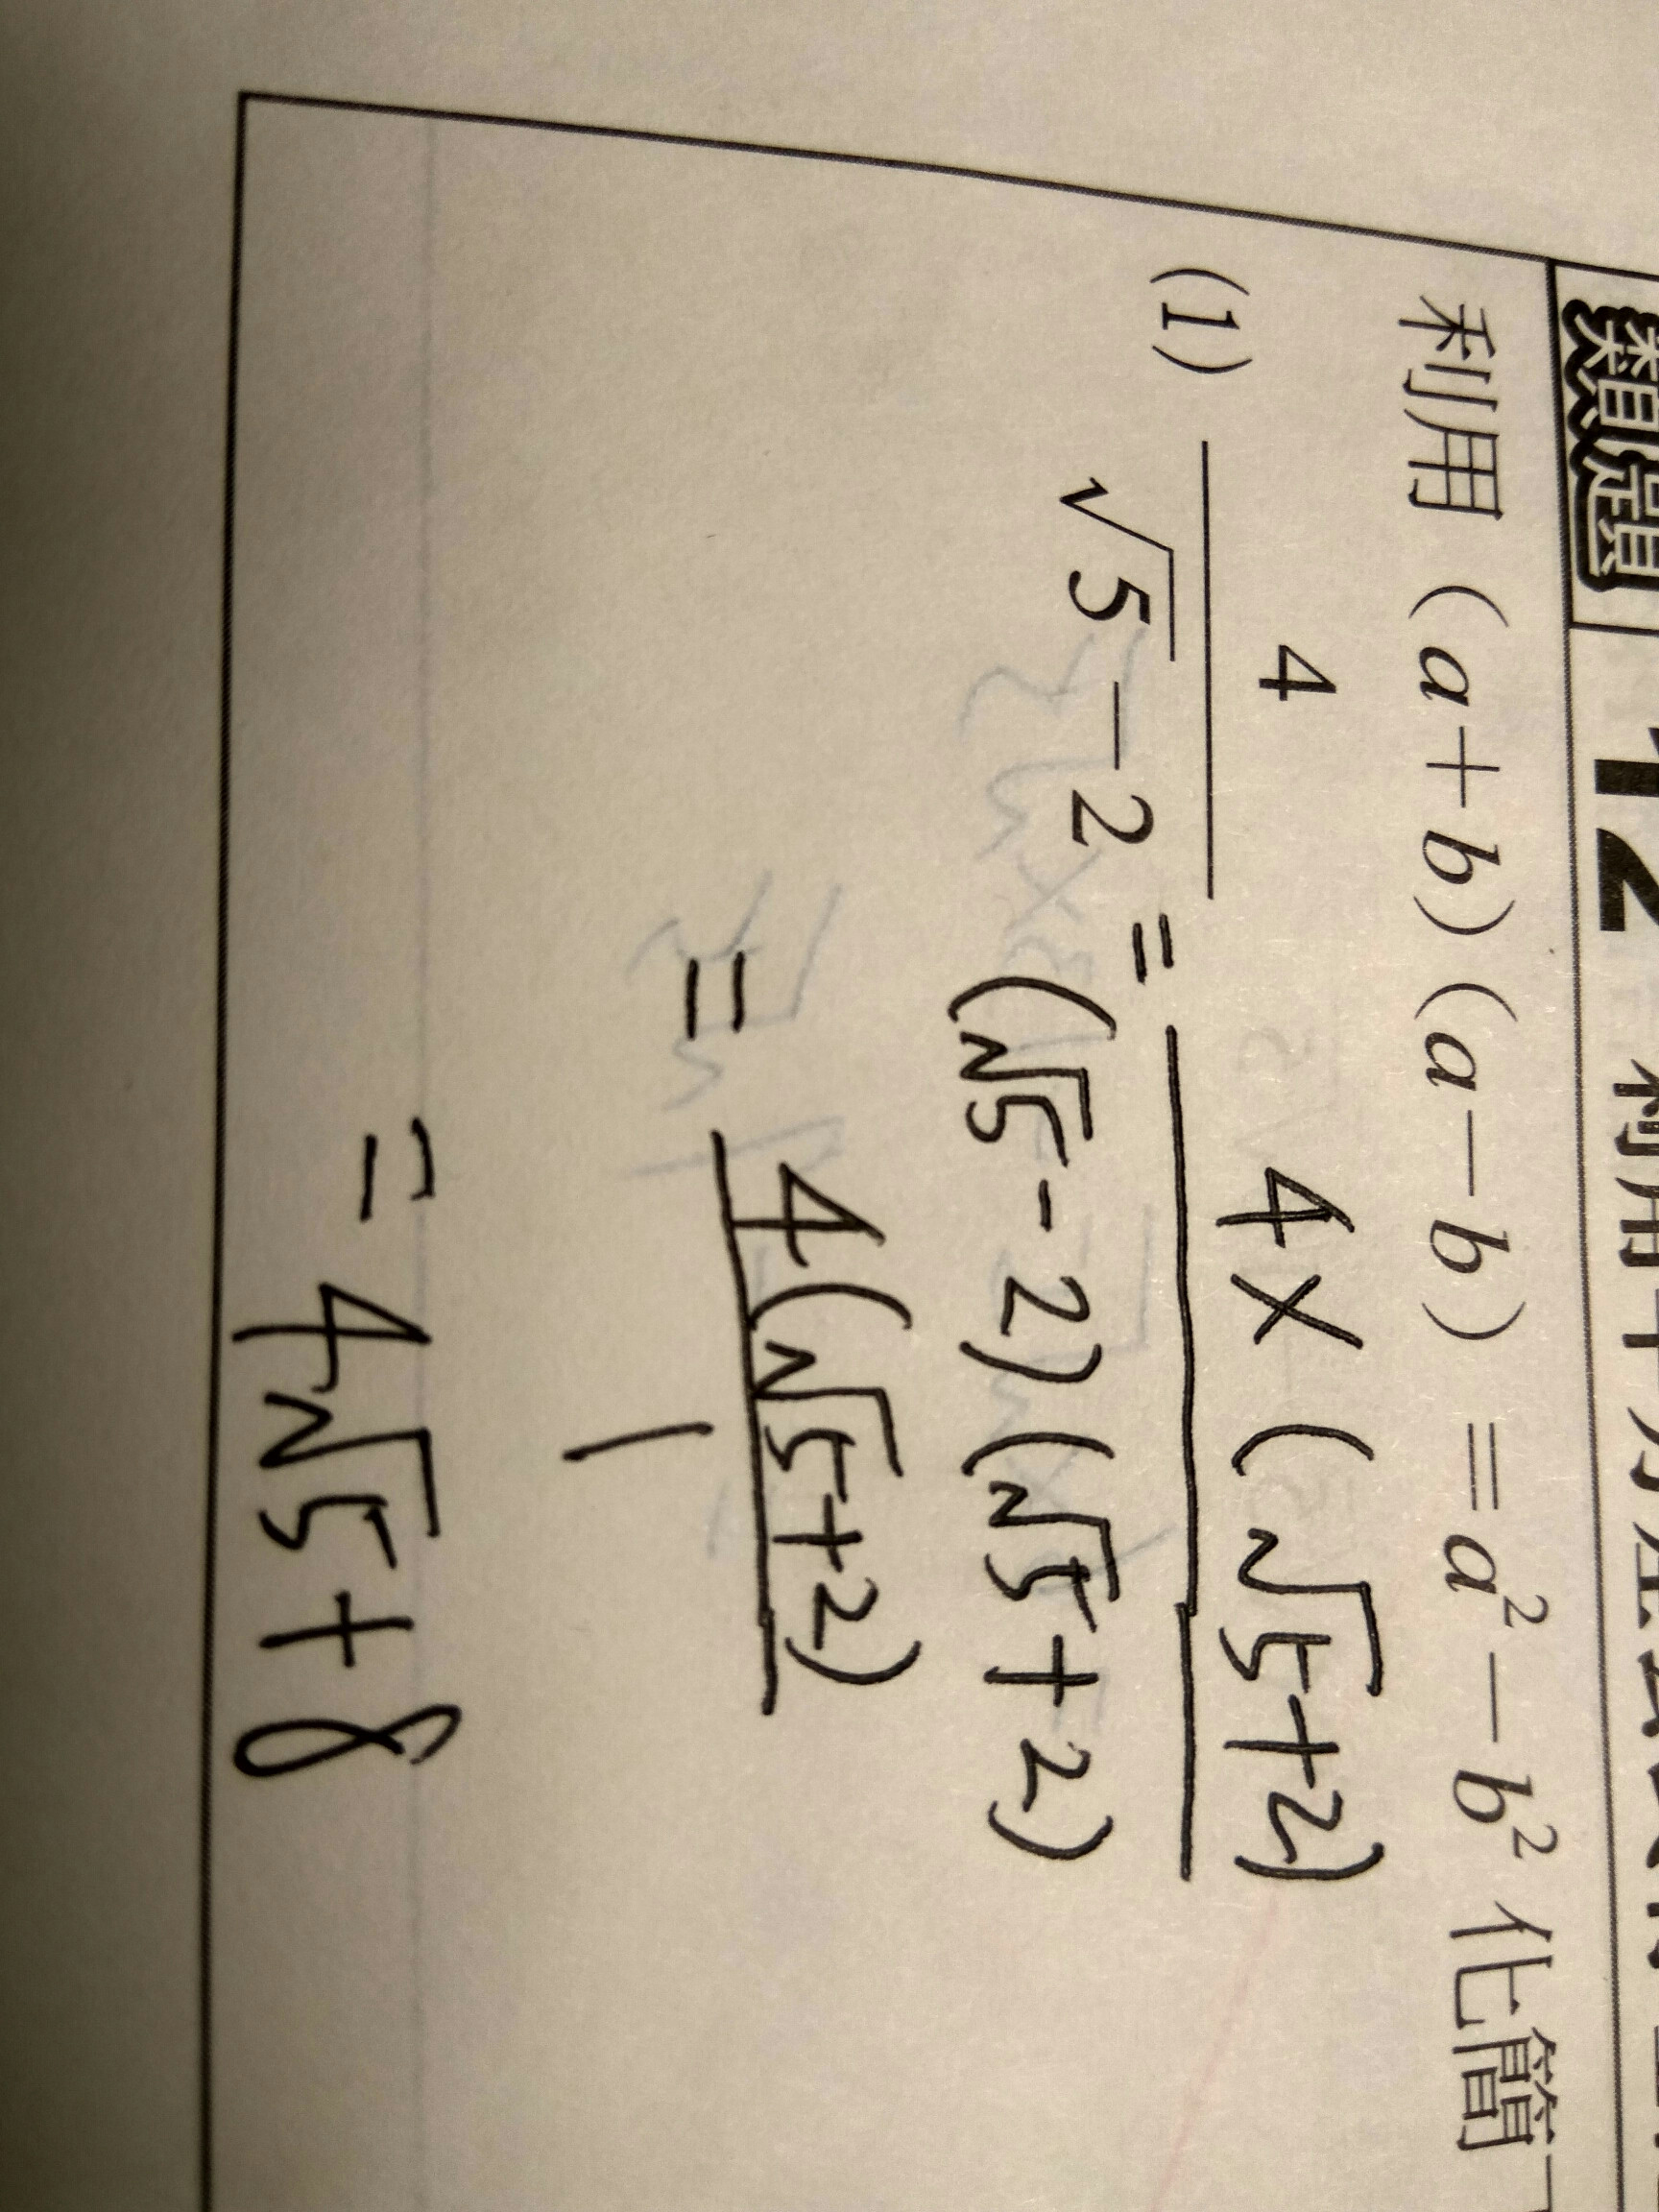 類題 12
利用 (a+b)(a−b) =a²−b² 化簡
(1) 4/(√5−2) = 4×(√5+2)/(√5-2)(√5+2)
= 4(√5+2)/1
= 4√5+8